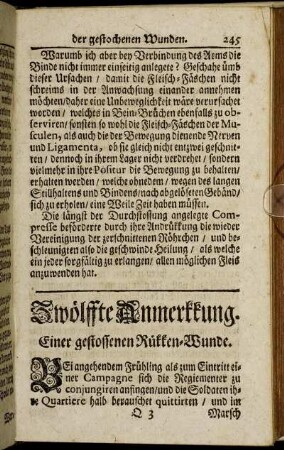 der gestochenen Wunden. 245
Warumb ich aber bey Verbindung des Arms die
Binde nicht immer einseitig anlegete? Geschahe umb
dieser Ursachen / damit die Fleisch-Fäschen nicht
schreims in der Anwachsung einander annehmen
möchten/dahre eine Unbeweglichkeit wäre verursachet
worden / welches in Bein-Brüchen ebenfalls zu ob-
serviren/ sonsten so wohl die Fleisch-Fäschen der Mu-
sculen, als auch die der Bewegung dienende Nerven
und Ligamenta, ob sie gleich nicht entzwei geschnit-
ten / dennoch in ihrem Lager nicht verdrehet / sondern
vielmehr in ihre Positur die Bewegung zu behalten/
erhalten werden / welche ohnedem / wegen des langen
Stillhaltens und Bindens/nach abgelöseten Gebänd/
sich zu erholen/ eine Weile Zeit haben müssen.
Die längst der Durchstossung angelegte Com-
presse beförderte durch ihre Andrükkung die wieder
Vereinigung der zerschnittenen Röhrchen / und be-
schleunigten also die geschwinde Heilung / als welche
ein jeder sorgfältig zu erlangen/ allen möglichen Fleis
anzuwenden hat.
Zwölffte Anmerkkung.
Einer gestossenen Rükken-Wunde.
BEi angehendem Frühling als zum Eintritt ei-
ner Campagne sich die Regiementer zu
conjungiren anfingen/und die Soldaten ih-
re Quartiere halb berauschet quittirten / und im
Q 3 Marsch